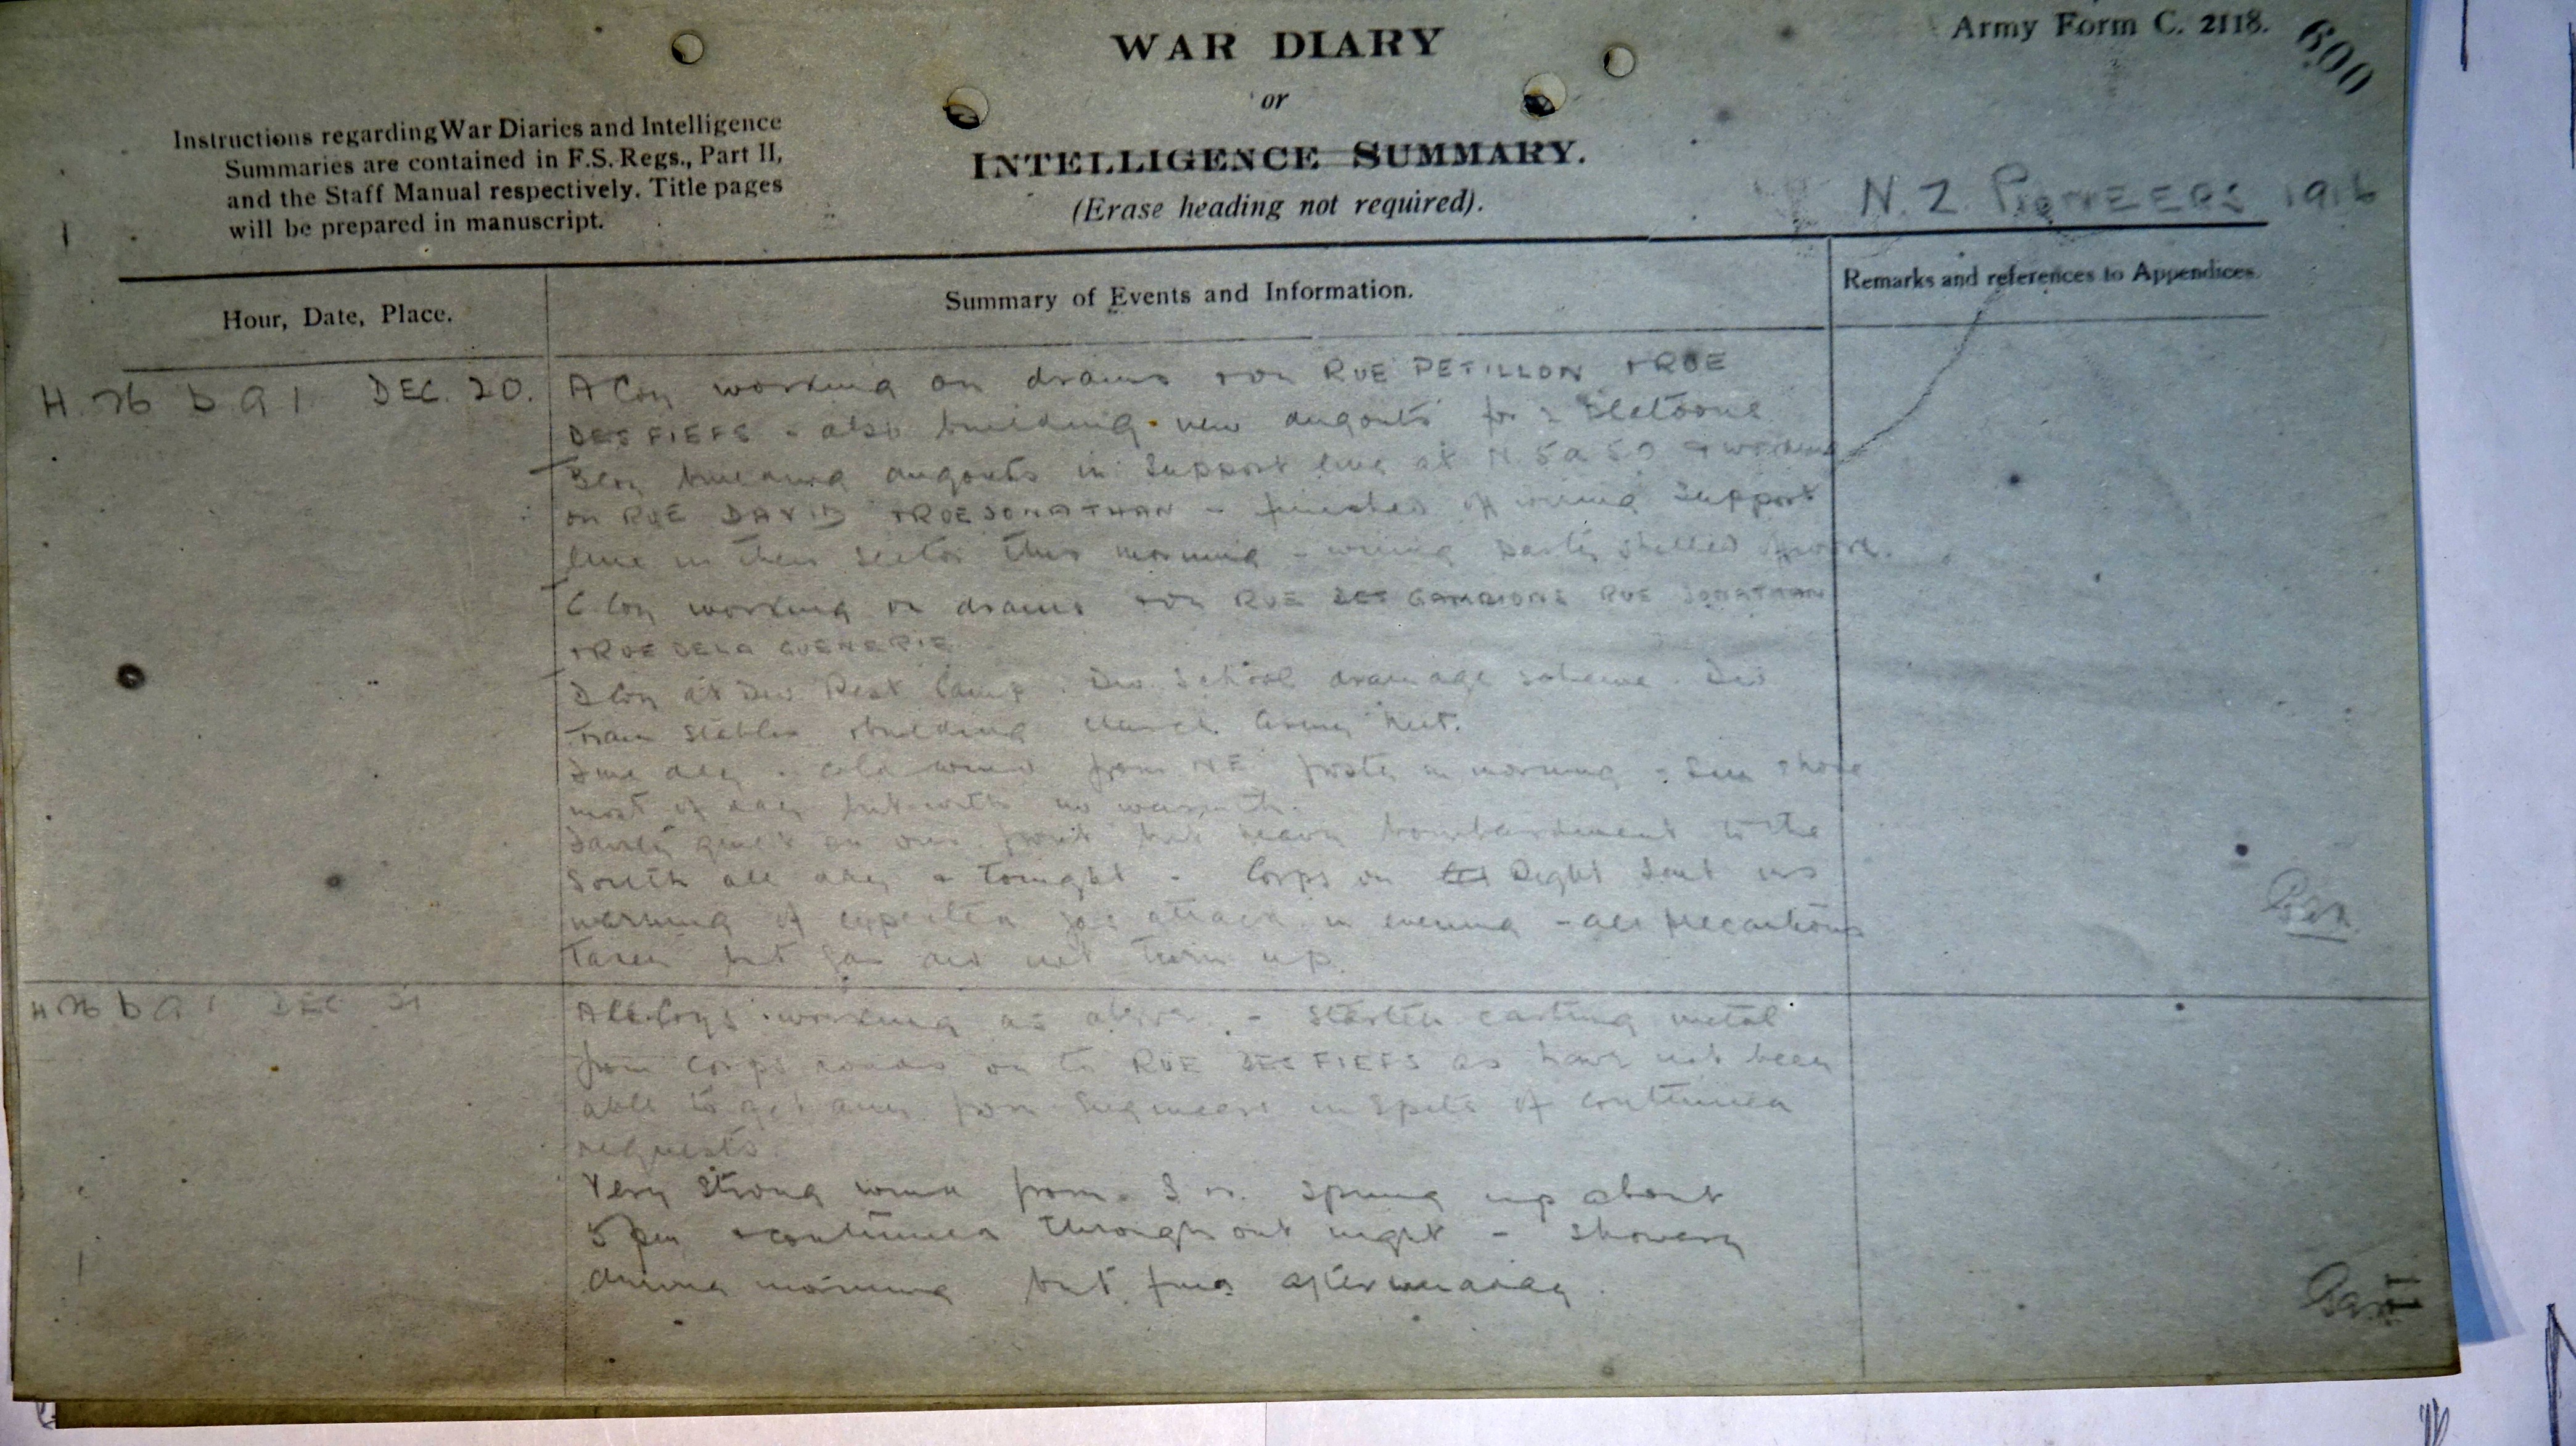 WAR DIARY
or
INTELLIGENCE SUMMARY.
(Erase heading not required).
Army Form C. 2118.
600
Instructions regarding War Diaries and Intelligence
Summaries are contained in F.S. Regs., Part II,
and the Staff Manual respectively. Title pages
will be prepared in manuscript.
N.Z PIONEERS 1916
Hour, Date, Place.
Summary of Events and Information.
Remarks and references to Appendices.
H. 26 b 9 1 DEC. 20.
A Coy working on drains + on RUE PETILLON + RUE
DES FIEFS - also building new dugouts for 2 Platoons
B Coy building dugouts in Support line at N 5 a 5 0 + working
on RUE DAVID + RUE JONATHAN - finished off wiring Support
line in their sector this morning - wiring party shelled
C Coy working on drains + on RUE DES CAMBIONS RUE JONATHAN
+ RUE DE LA GUENERIE
D Coy at Div Rest Camp. Div. School drainage scheme. Div
Train stables + building Church Army Hut.
Fine day - cold wind from NE frosty in morning - Sun shone
most of day but with no warmth.
Fairly quiet on our front but heavy bombardment to the
South all day + tonight - Corps on Right sent us
warning of expected gas attack in evening - all precautions
taken but gas did not turn up.
H 26 b 9 1 DEC 21
All Coys working as above. - Started carting metal
from Corps roads on to RUE DES FIEFS as have not been
able to get any from Engineers in spite of continued
requests.
Very strong wind from S W. sprung up about
5 pm + continued throughout night - showery
during morning but fine
11